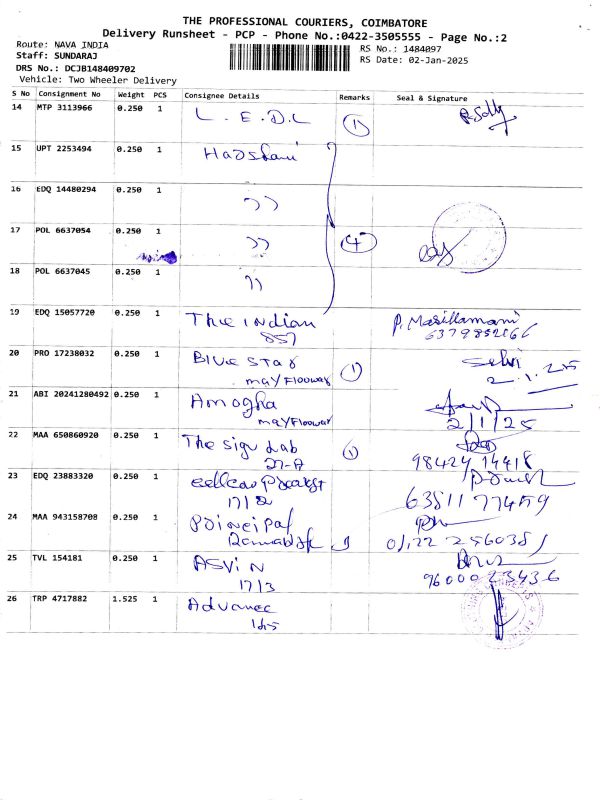 THE PROFESSIONAL COURIERS, COIMBATORE
Delivery Runsheet - PCP - Phone No.:0422-3505555 - Page No.:2
Route: NAVA INDIA
Staff: SUNDARAJ
DRS No.: DCJB148409702
Vehicle: Two Wheeler Delivery
RS No.: 1484097
RS Date: 02-Jan-2025
S No Consignment No Weight PCS Consignee Details Remarks Seal & Signature
14 MTP 3113966 0.250 1 L. E. D. L 1
15 UPT 2253494 0.250 1
16 EDQ 14480294 0.250 1 ,,
17 POL 6637054 0.250 1 ,, 4
18 POL 6637045 0.250 1 ,,
19 EDQ 15057720 0.250 1 The indian P. Masillamani
857 6379852166
20 PRO 17238032 0.250 1 Blue star 1 Selvi
mayFlower 2.1.25
21 ABI 20241280492 0.250 1 Amogha
mayFlower 2/1/25
22 MAA 650860920 0.250 1 The sign Lab 1
27-A 98424 14418
23 EDQ 23883320 0.250 1
6381177459
24 MAA 943158708 0.250 1 Principal
25 TVL 154181 0.250 1 ASVIN
17/3 9600023436
26 TRP 4717882 1.525 1 Advance
165